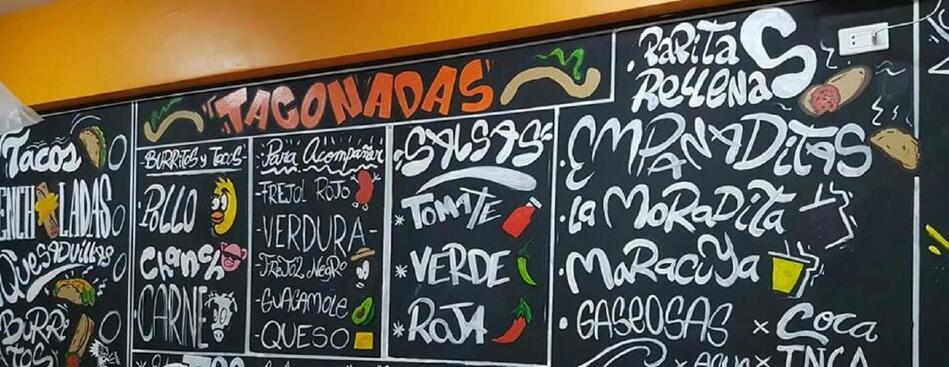 TACOS
ENCHILADAS
QUESADILLAS
BURRI
"TACONADAS"
BURRITOS y TACOS
POLLO
Chanch
CARNE
Para Acompañar
FREJOL ROJO
-VERDURA-
FREJOL NEGRO
·GUACAMOLE
·QUESO
SALSAS
* TOMATE
* VERDE
* ROJA
·PAPITAS
RELLENAS
·EMPANADITAS
·LA MORADITA
·MARACUYA
·GASEOSAS x Coca
INCA